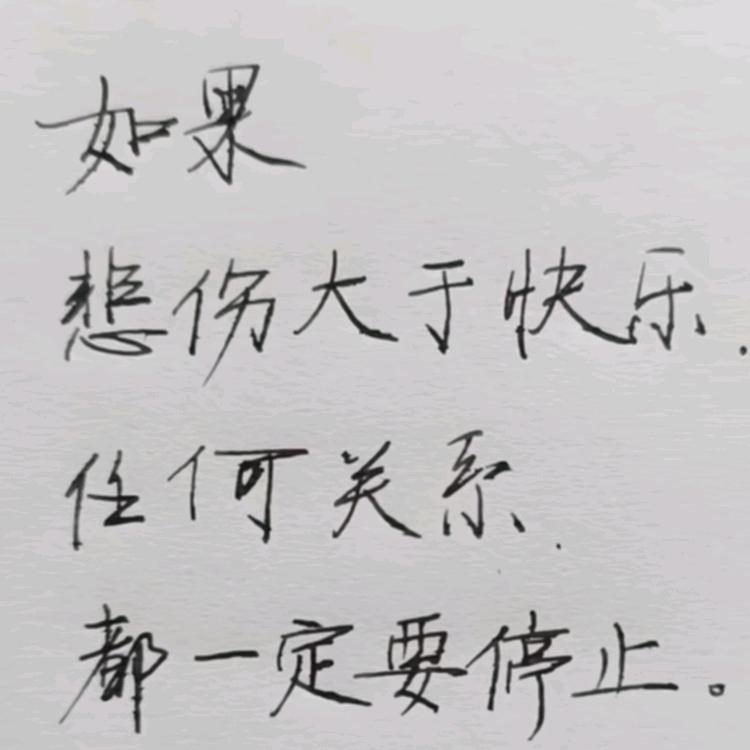 如果
悲伤大于快乐.
任何关系.
都一定要停止。